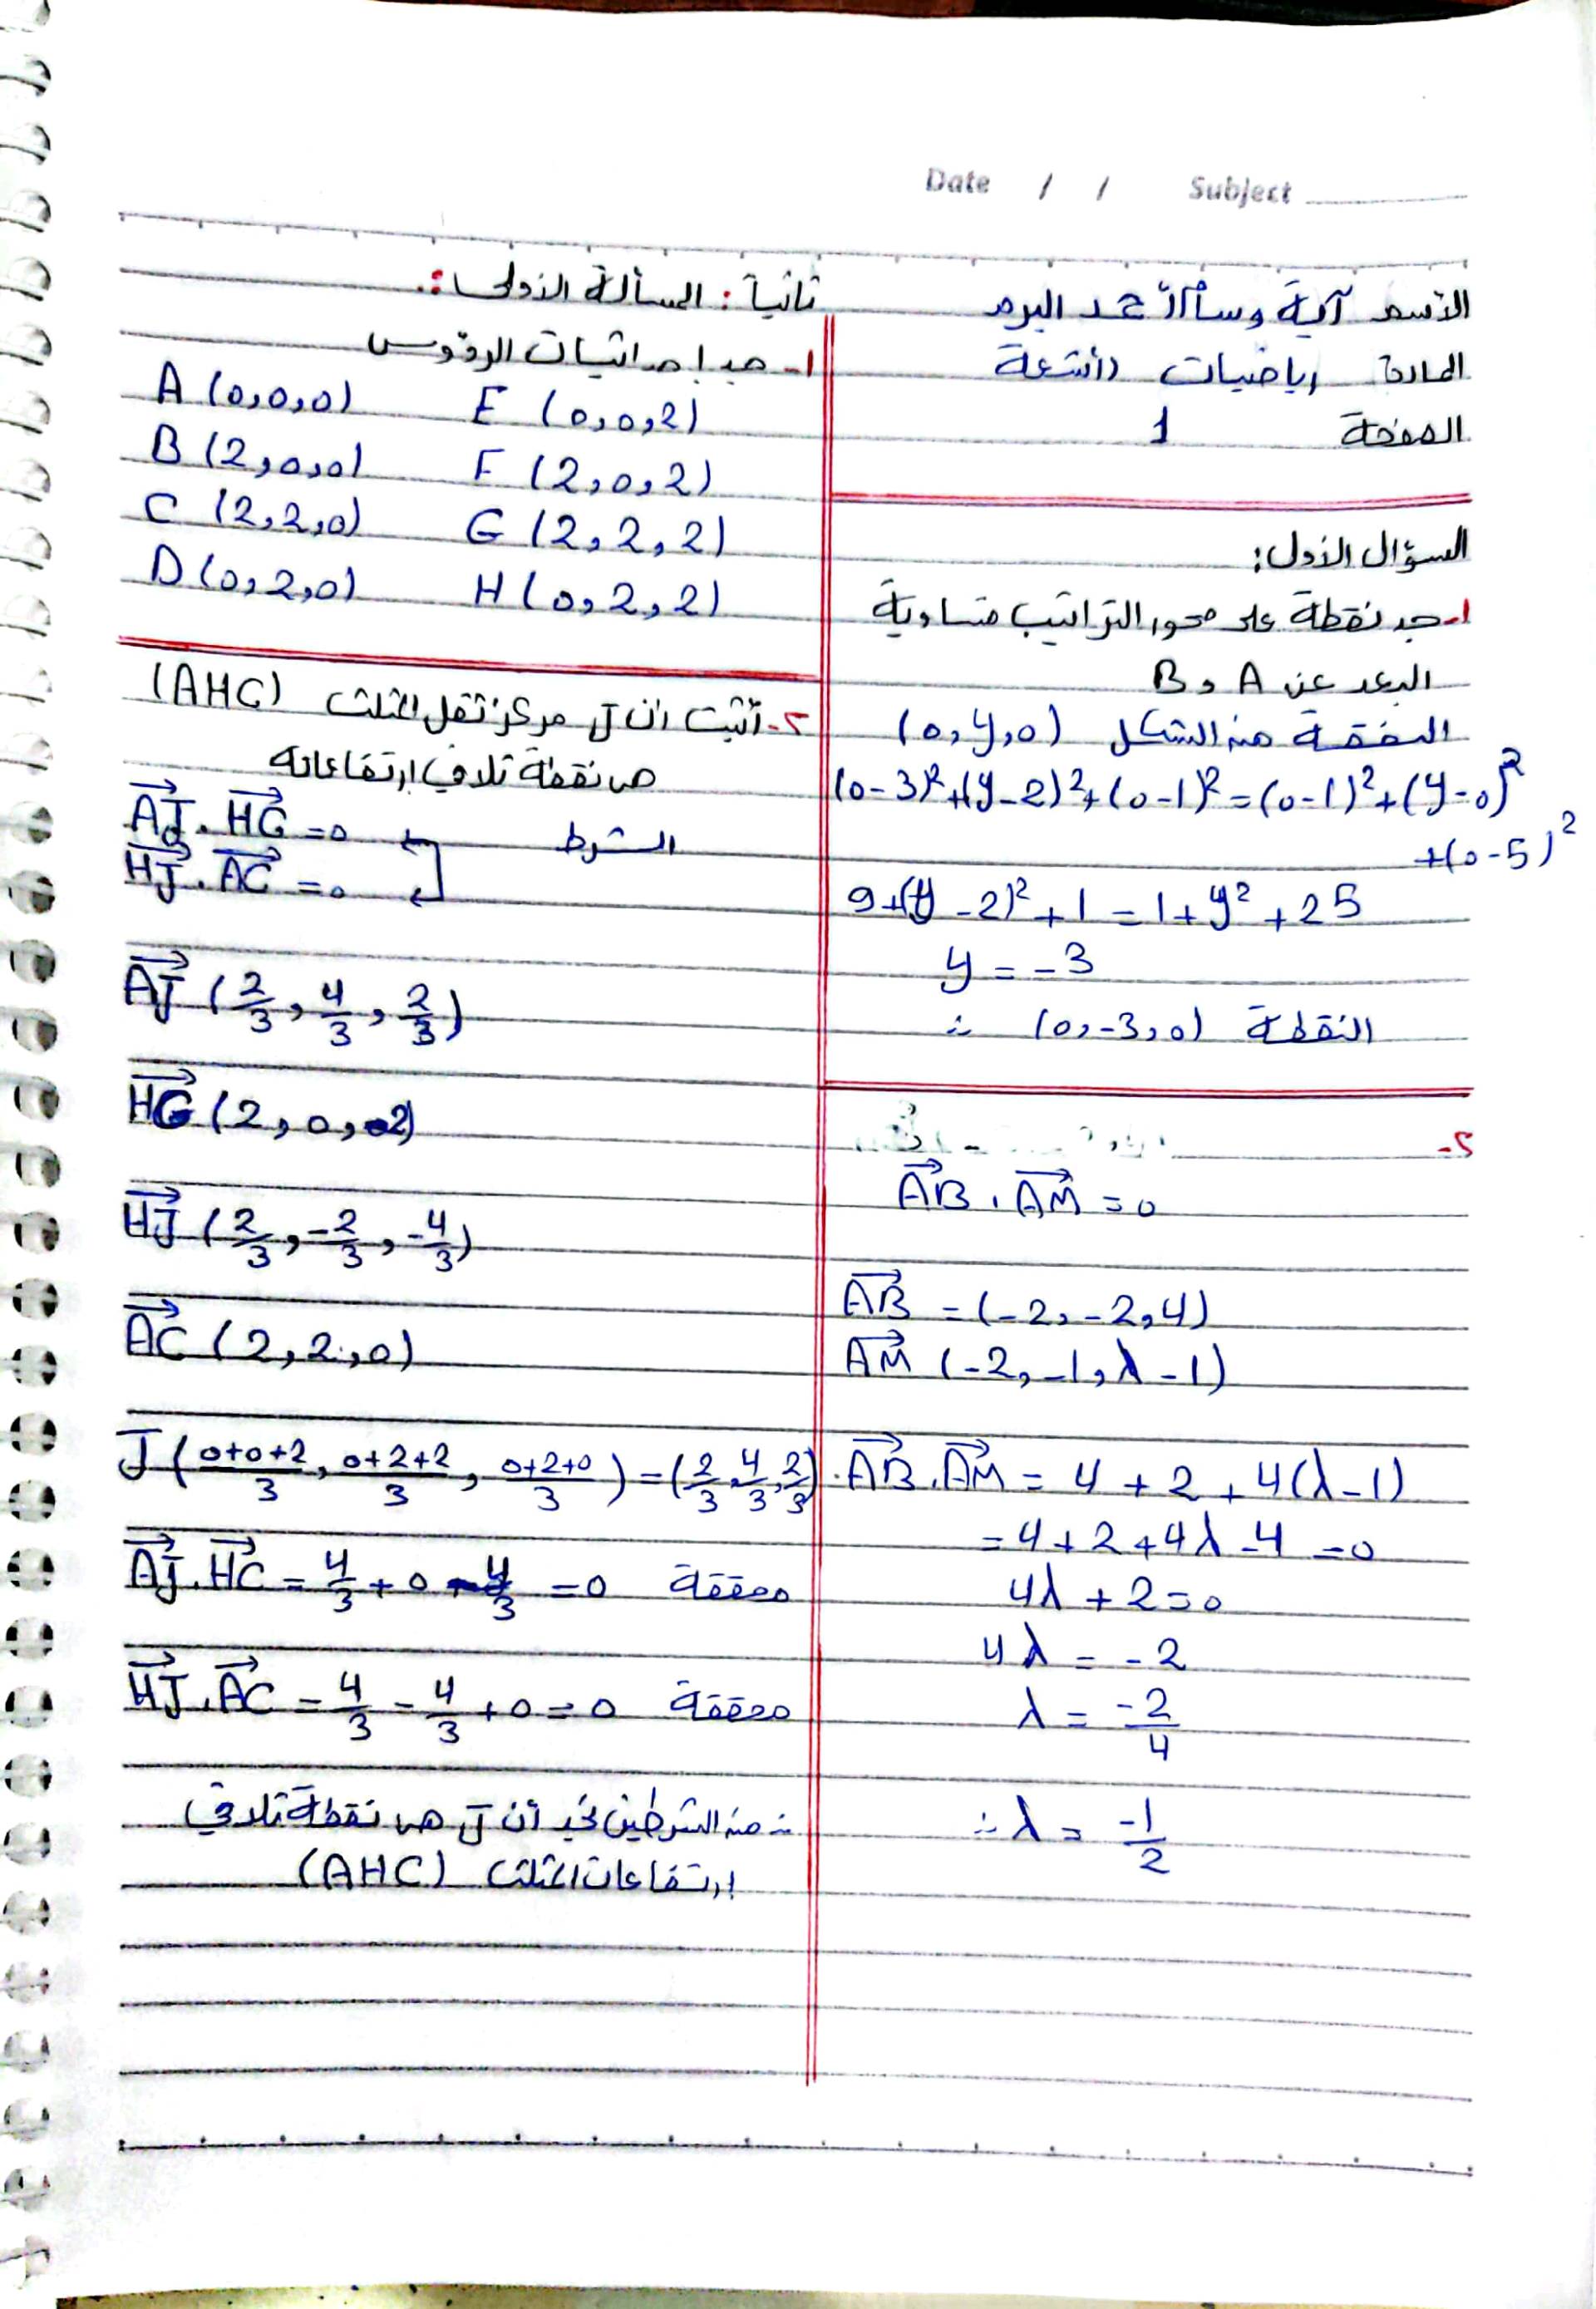 Date / / Subject
الاسم آية وسام محمد البرم
المادة رياضيات (أشعة
الصفحة 1
السؤال الأول:
1- جد نقطة على محور التراتيب متساوية
البعد عن A و B
النقطة من الشكل (0,y,0)
(0-3)²+(y-2)²+(0-1)²=(0-1)²+(y-0)²
+(0-5)²
9+(y-2)²+1=1+y²+25
y=-3
∴ النقطة (0,-3,0)
2-
AB→ . AM→ = 0
AB→ = (-2,-2,4)
AM→ (-2,-1,λ-1)
AB→ . AM→ = 4+2+4(λ-1)
=4+2+4λ-4=0
4λ+2=0
4λ=-2
λ=-2/4
∴ λ=-1/2
ثانياً: المسألة الأولى:.
1- جد إحداثيات الرؤوس
A (0,0,0) E (0,0,2)
B (2,0,0) F (2,0,2)
C (2,2,0) G (2,2,2)
D (0,2,0) H (0,2,2)
2- أثبت أن J مركز ثقل المثلث (AHC)
هي نقطة تلاقي ارتفاعاته
AJ→ . HC→ = 0
الشرط
HJ→ . AC→ = 0
AJ→ (2/3, 4/3, 2/3)
HC→ (2,0,-2)
HJ→ (2/3, -2/3, -4/3)
AC→ (2,2,0)
J (0+0+2/3, 0+2+2/3, 0+2+0/3) = (2/3, 4/3, 2/3)
AJ→ . HC→ = 4/3 + 0 - 4/3 = 0 محققة
HJ→ . AC→ = 4/3 - 4/3 + 0 = 0 محققة
∴ من الشرطين نجد أن J هي نقطة تلاقي
ارتفاعات المثلث (AHC)